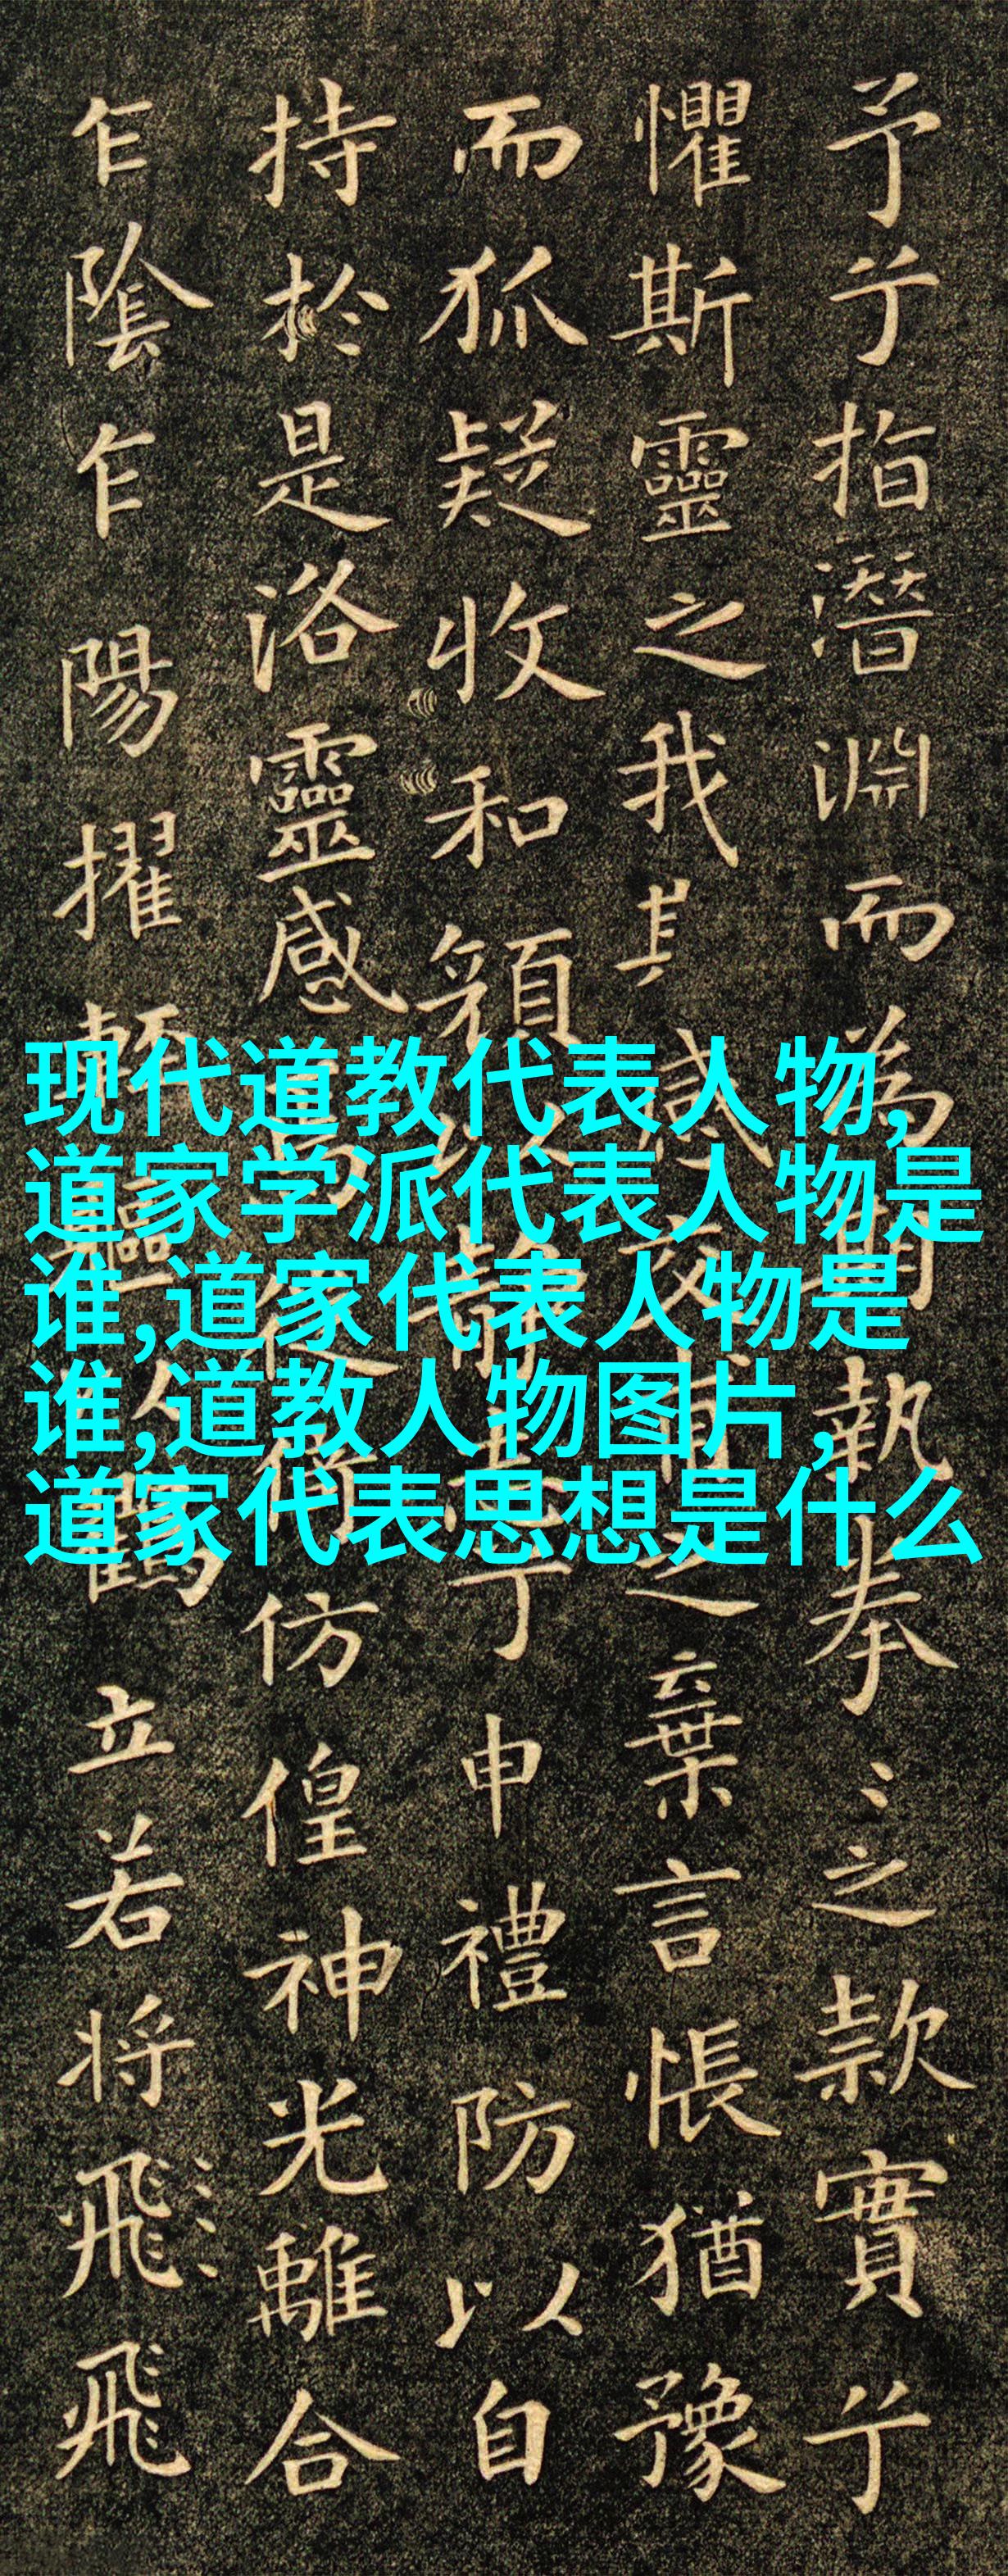 予兮指潛淵而為期執拳〻之款實兮
懼斯靈之我其感交甫之棄言悵猶豫
而狐疑收和顏以靜志兮申禮防以自
持於是洛靈感焉徙倚仿偟神光離合
乍陰乍陽擢輕軀以鶴立若將飛飛
现代道教代表人物,
道家学派代表人物是
谁,道家代表人物是
谁,道教人物图片,
道家代表思想是什么